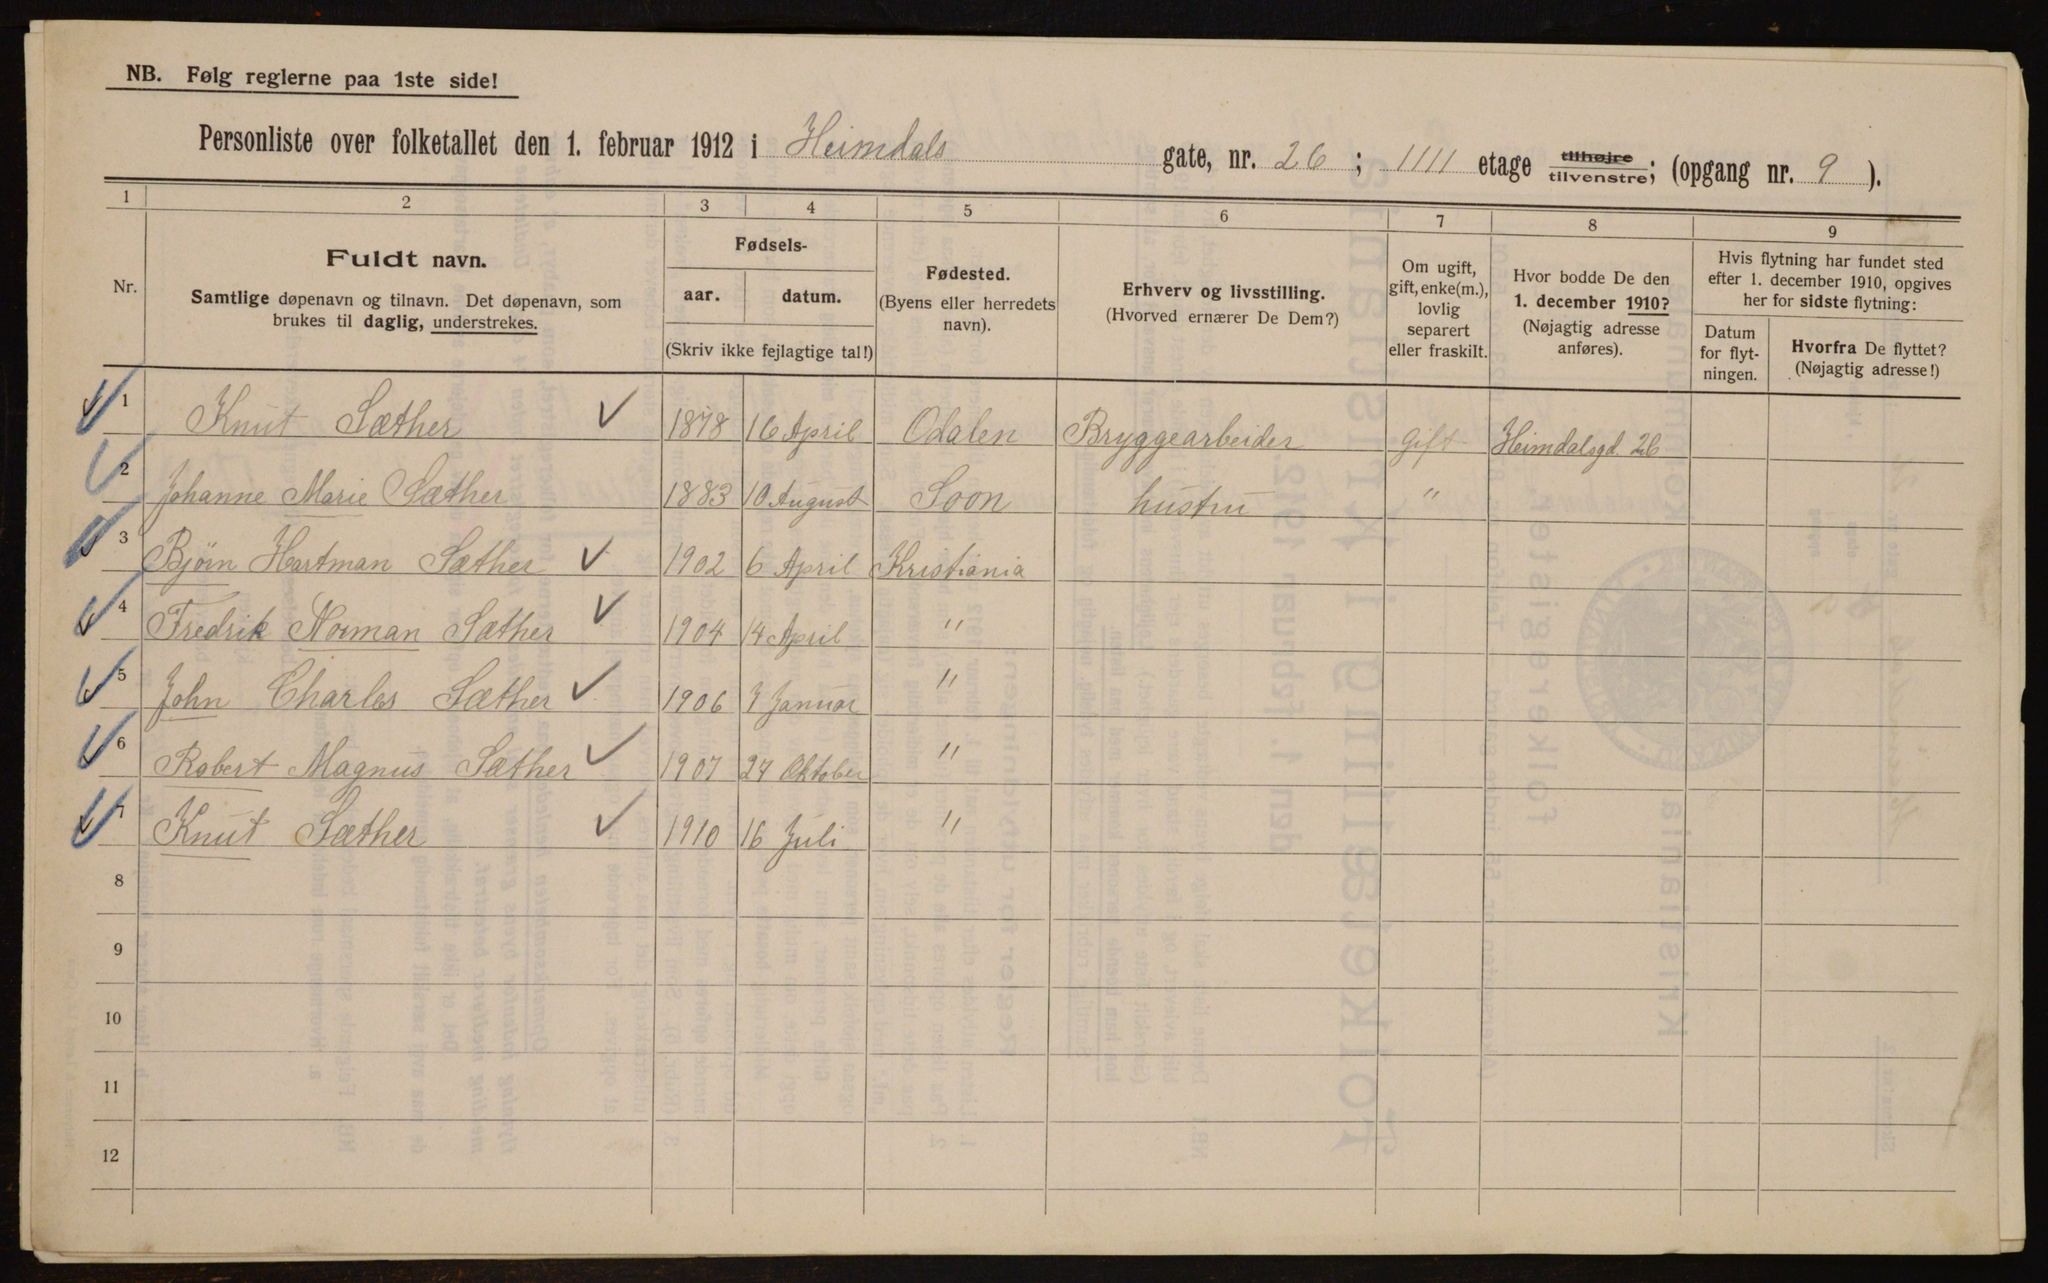 NB. Følg reglerne paa 1ste side!
Personliste over folketallet den 1. februar 1912 i Heimdals gate, nr. 26 ; 1111 etage tilhøjre tilvenstre; (opgang nr. 9 ).
1 2 3 4 5 6 7 8 9
Nr.
Fuldt navn.
Samtlige døpenavn og tilnavn. Det døpenavn, som
brukes til daglig, understrekes.
Fødsels-
aar. datum.
(Skriv ikke fejlagtige tal!)
Fødested.
(Byens eller herredets
navn).
Erhverv og livsstilling.
(Hvorved ernærer De Dem?)
Om ugift,
gift, enke(m.),
lovlig
separert
eller fraskilt.
Hvor bodde De den
1. december 1910?
(Nøjagtig adresse
anføres).
Hvis flytning har fundet sted
efter 1. december 1910, opgives
her for sidste flytning:
Datum
for flyt-
ningen.
Hvorfra De flyttet?
(Nøjagtig adresse!)
1 Knut Sæther 1878 16 April Odalen Bryggearbeider Gift Heimdalsgd. 26
2 Johanne Marie Sæther 1883 10 August Soon hustru "
3 Bjørn Hartman Sæther 1902 6 April Kristiania
4 Fredrik Norman Sæther 1904 14 April "
5 John Charles Sæther 1906 7 Januar "
6 Robert Magnus Sæther 1907 27 Oktober "
7 Knut Sæther 1910 16 Juli "
8
9
10
11
12